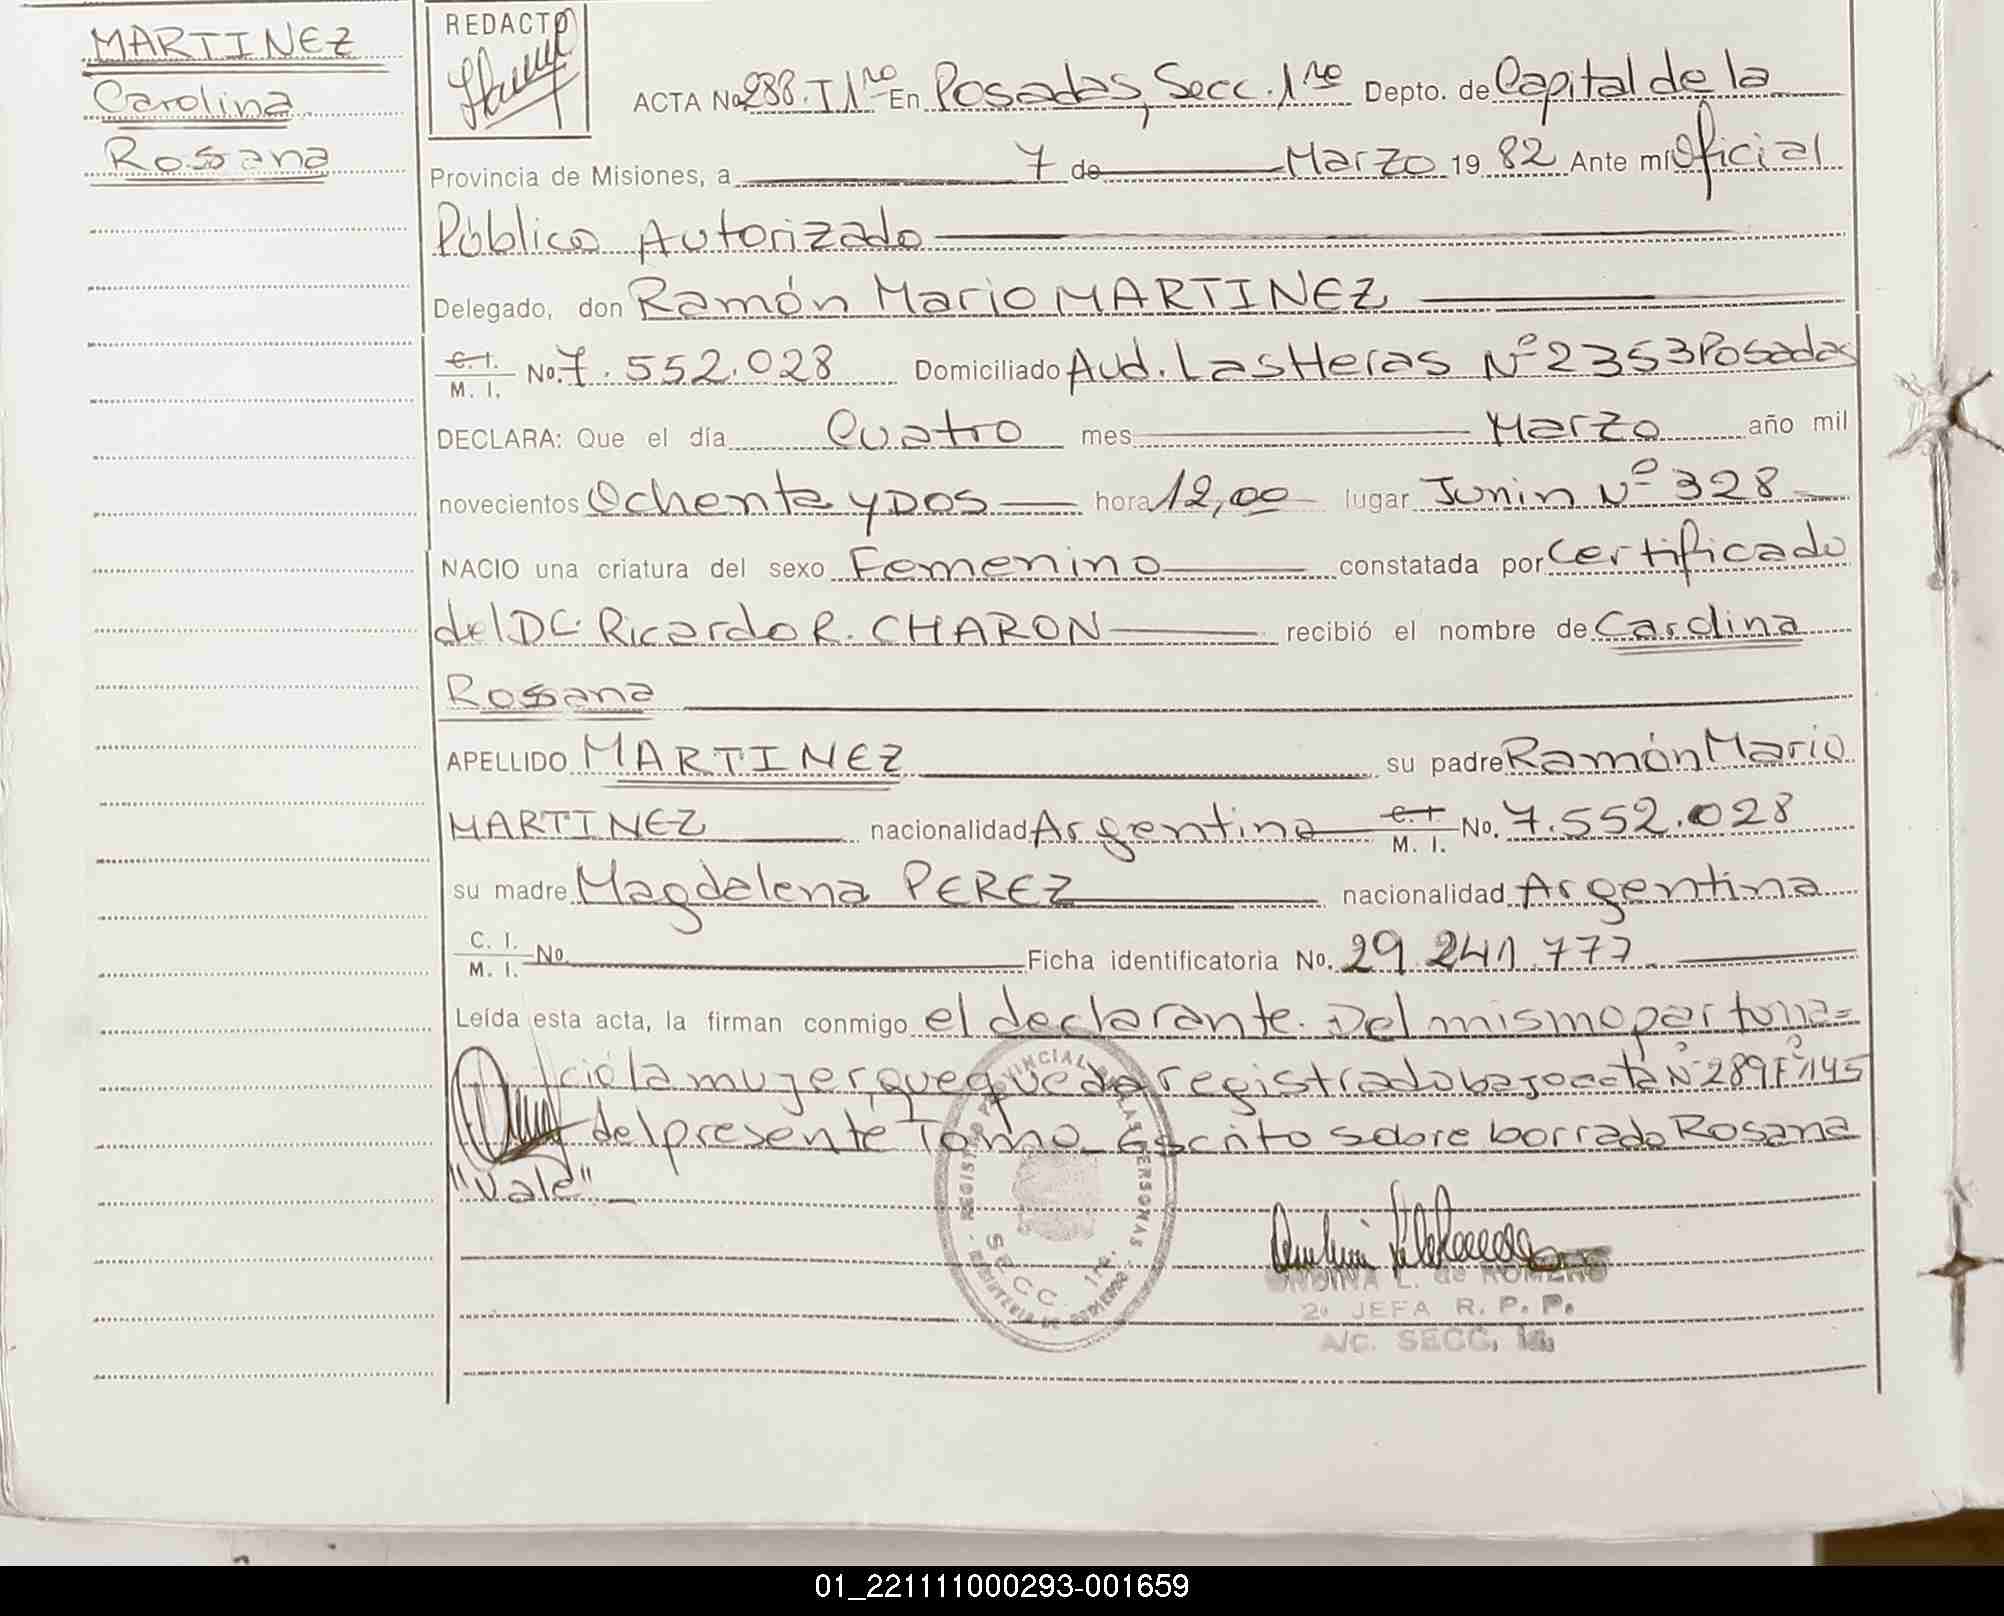 MARTINEZ
Carolina
Rossana
REDACTO
ACTA No 288. T 1ro En Posadas, Secc. 1ro Depto. de Capital de la
Provincia de Misiones, a 7 de Marzo 19 82 Ante mí Oficial
Público Autorizado
Delegado, don Ramón Mario MARTINEZ
C. I.
M. I. No. 7.552.028 Domiciliado Aud. Las Heras Nº 2353 Posadas
DECLARA: Que el día Cuatro mes Marzo año mil
novecientos Ochenta y DOS hora 12,00 lugar Junin Nº 328
NACIO una criatura del sexo Femenino constatada por Certificado
del Dr. Ricardo R. CHARON recibió el nombre de Carolina
Rossana
APELLIDO MARTINEZ su padre Ramón Mario
MARTINEZ nacionalidad Argentina C. I.
M. I. No. 7.552.028
su madre Magdalena PEREZ nacionalidad Argentina
C. I.
M. I. No. Ficha identificatoria No. 29.241.777
Leída esta acta, la firman conmigo el declarante. Del mismo par tona=
ció la mujer, que queda registrado bajo acta Nº 289 Fº 145
del presente Tomo Escrito sobre borrado Rosana
"Vale"
REGISTRO PROVINCIAL DE LAS PERSONAS
SECC. 1ra.
MINISTERIO DE GOBIERNO
ONDINA L. de ROMERO
2a JEFA R. P. P.
A/C. SECC. 1a.
01_221111000293-001659